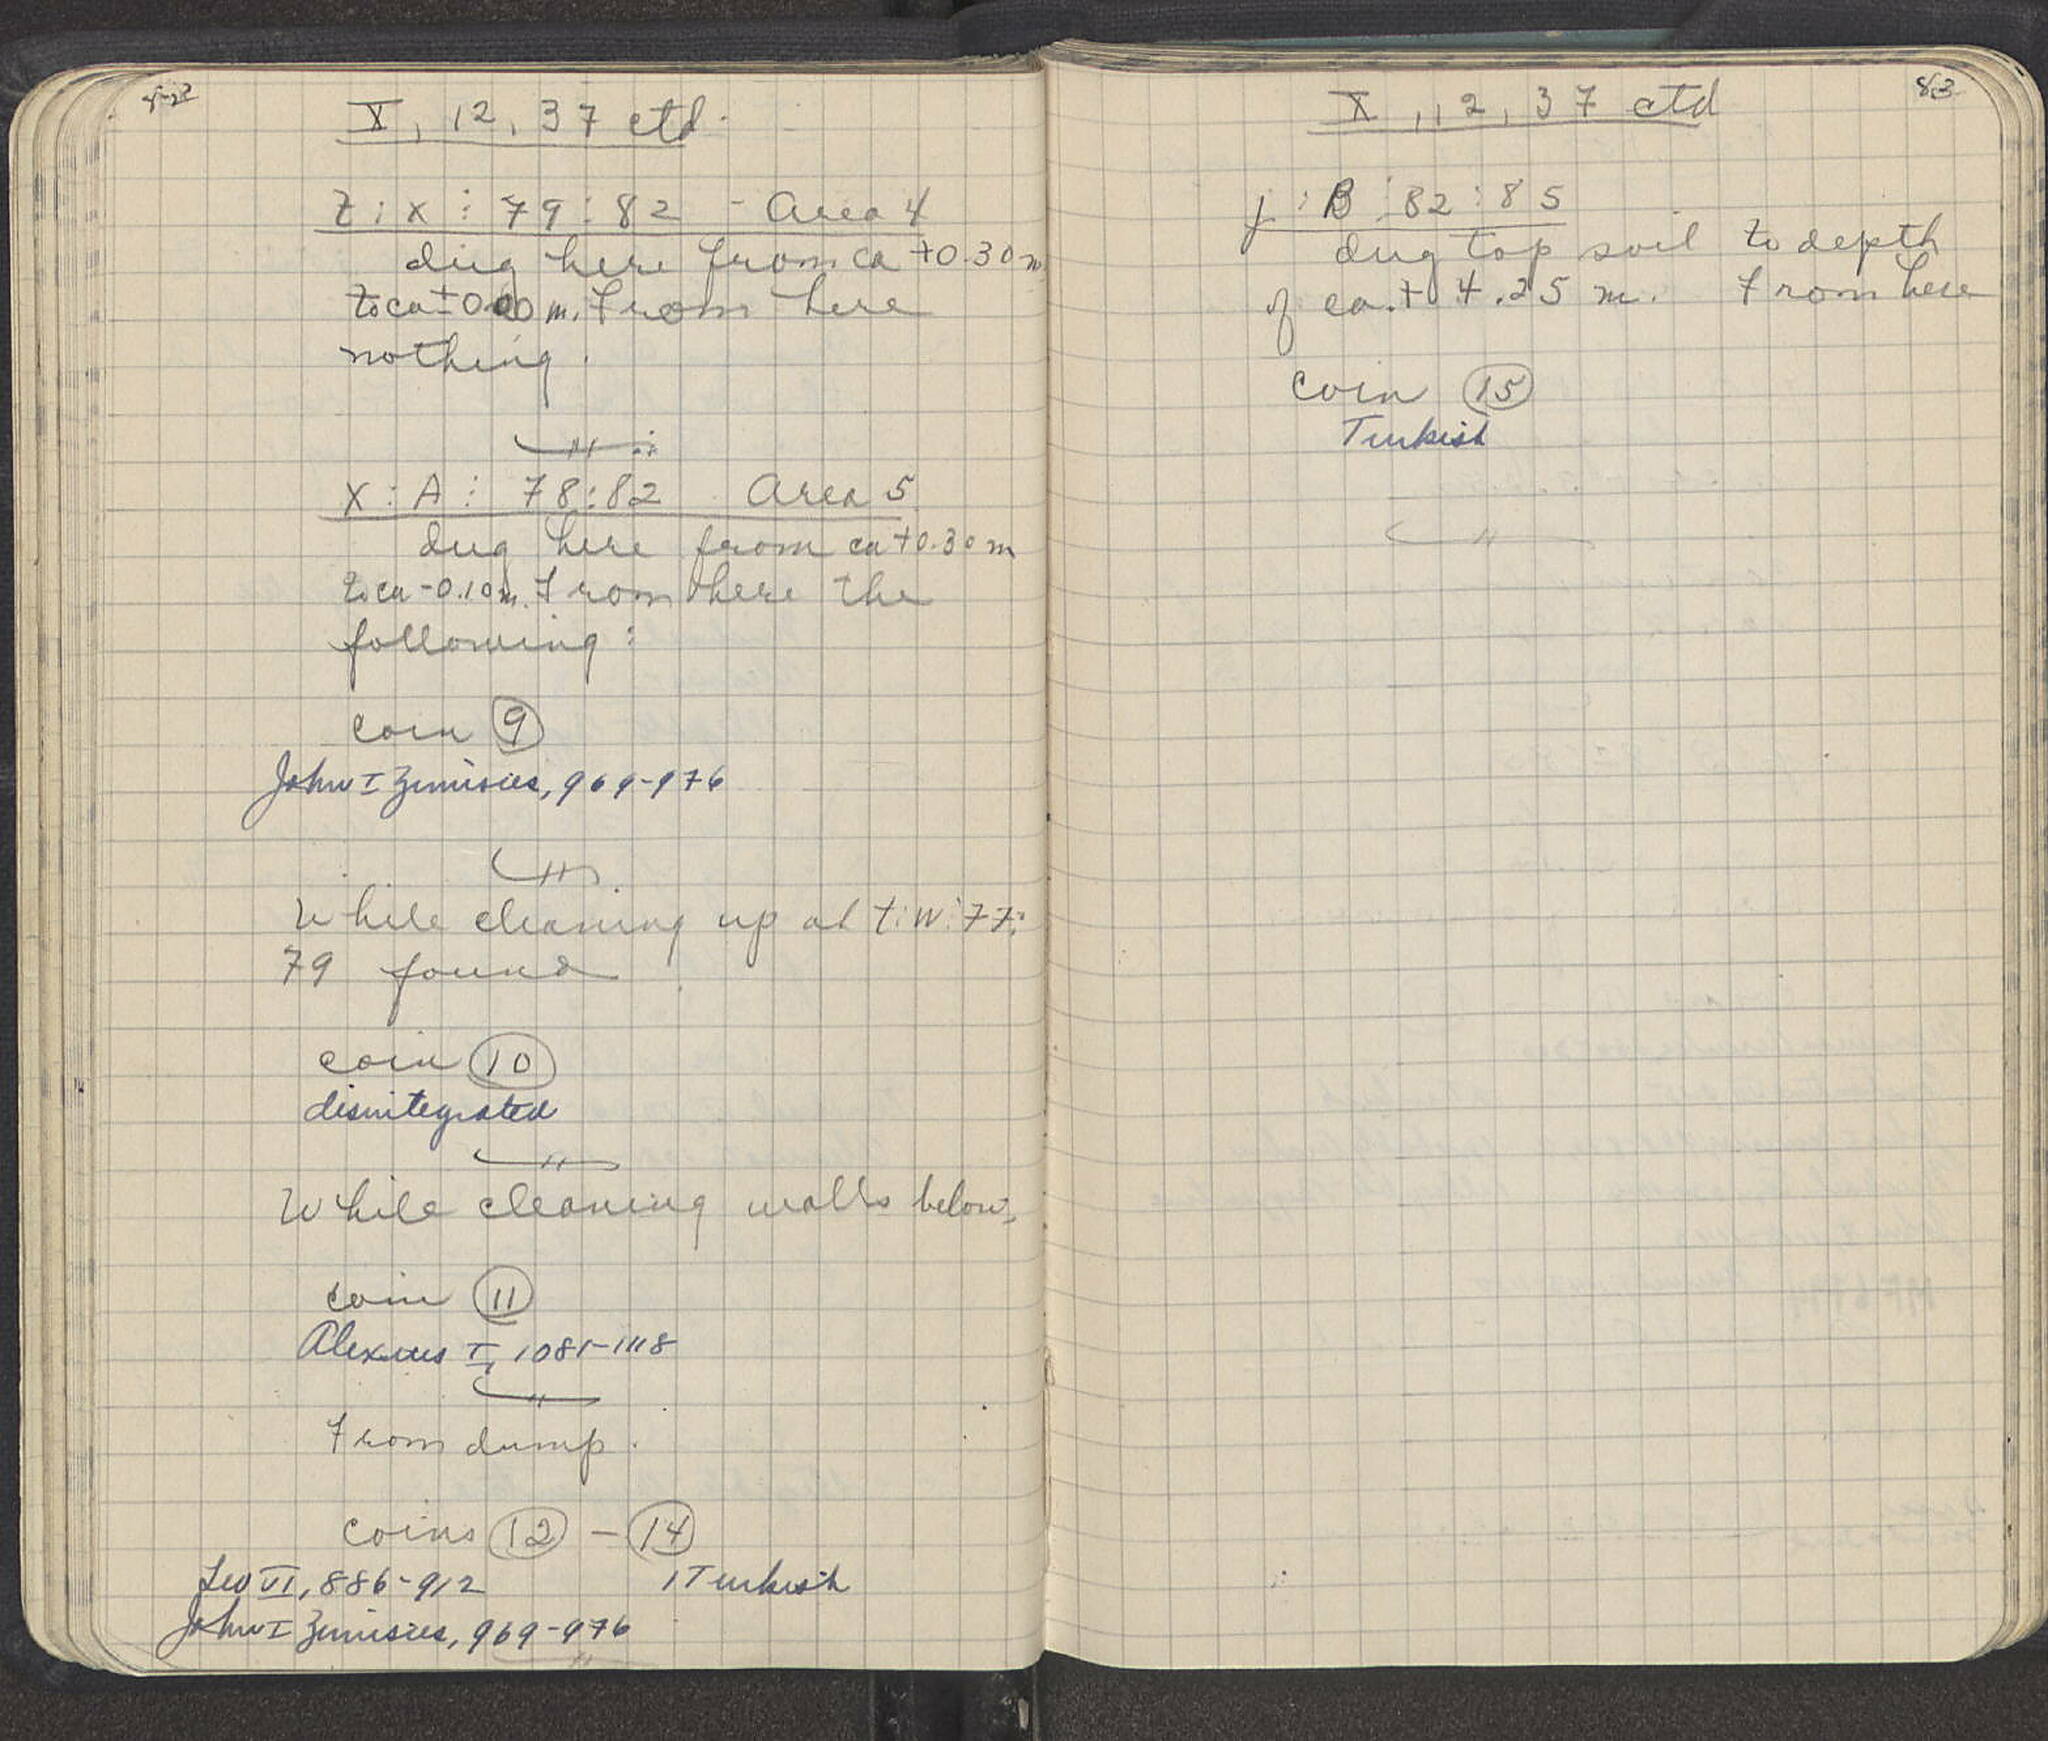 X, 12, 37 ctd.
t:x : 79:82 - Area 4
dug here from ca +0.30 m
to ca ±0.00 m. From here
nothing.
x:A: 78:82 Area 5
dug here from ca +0.30 m
to ca -0.10 m. From here the
following:
coin 9
John I Zimisces, 969-976
While cleaning up at t:w:77:
79 found
coin 10
disintegrated
While cleaning walls below,
coin 11
Alexius I, 1081-1118
From dump.
coins 12 - 14
Leo VI, 886-912 1 Turkish
John I Zimisces, 969-976
83
X, 12, 37 ctd
:B:82:85
dug top soil to depth
of ca. + 4.25 m. From here
coin 15
Turkish